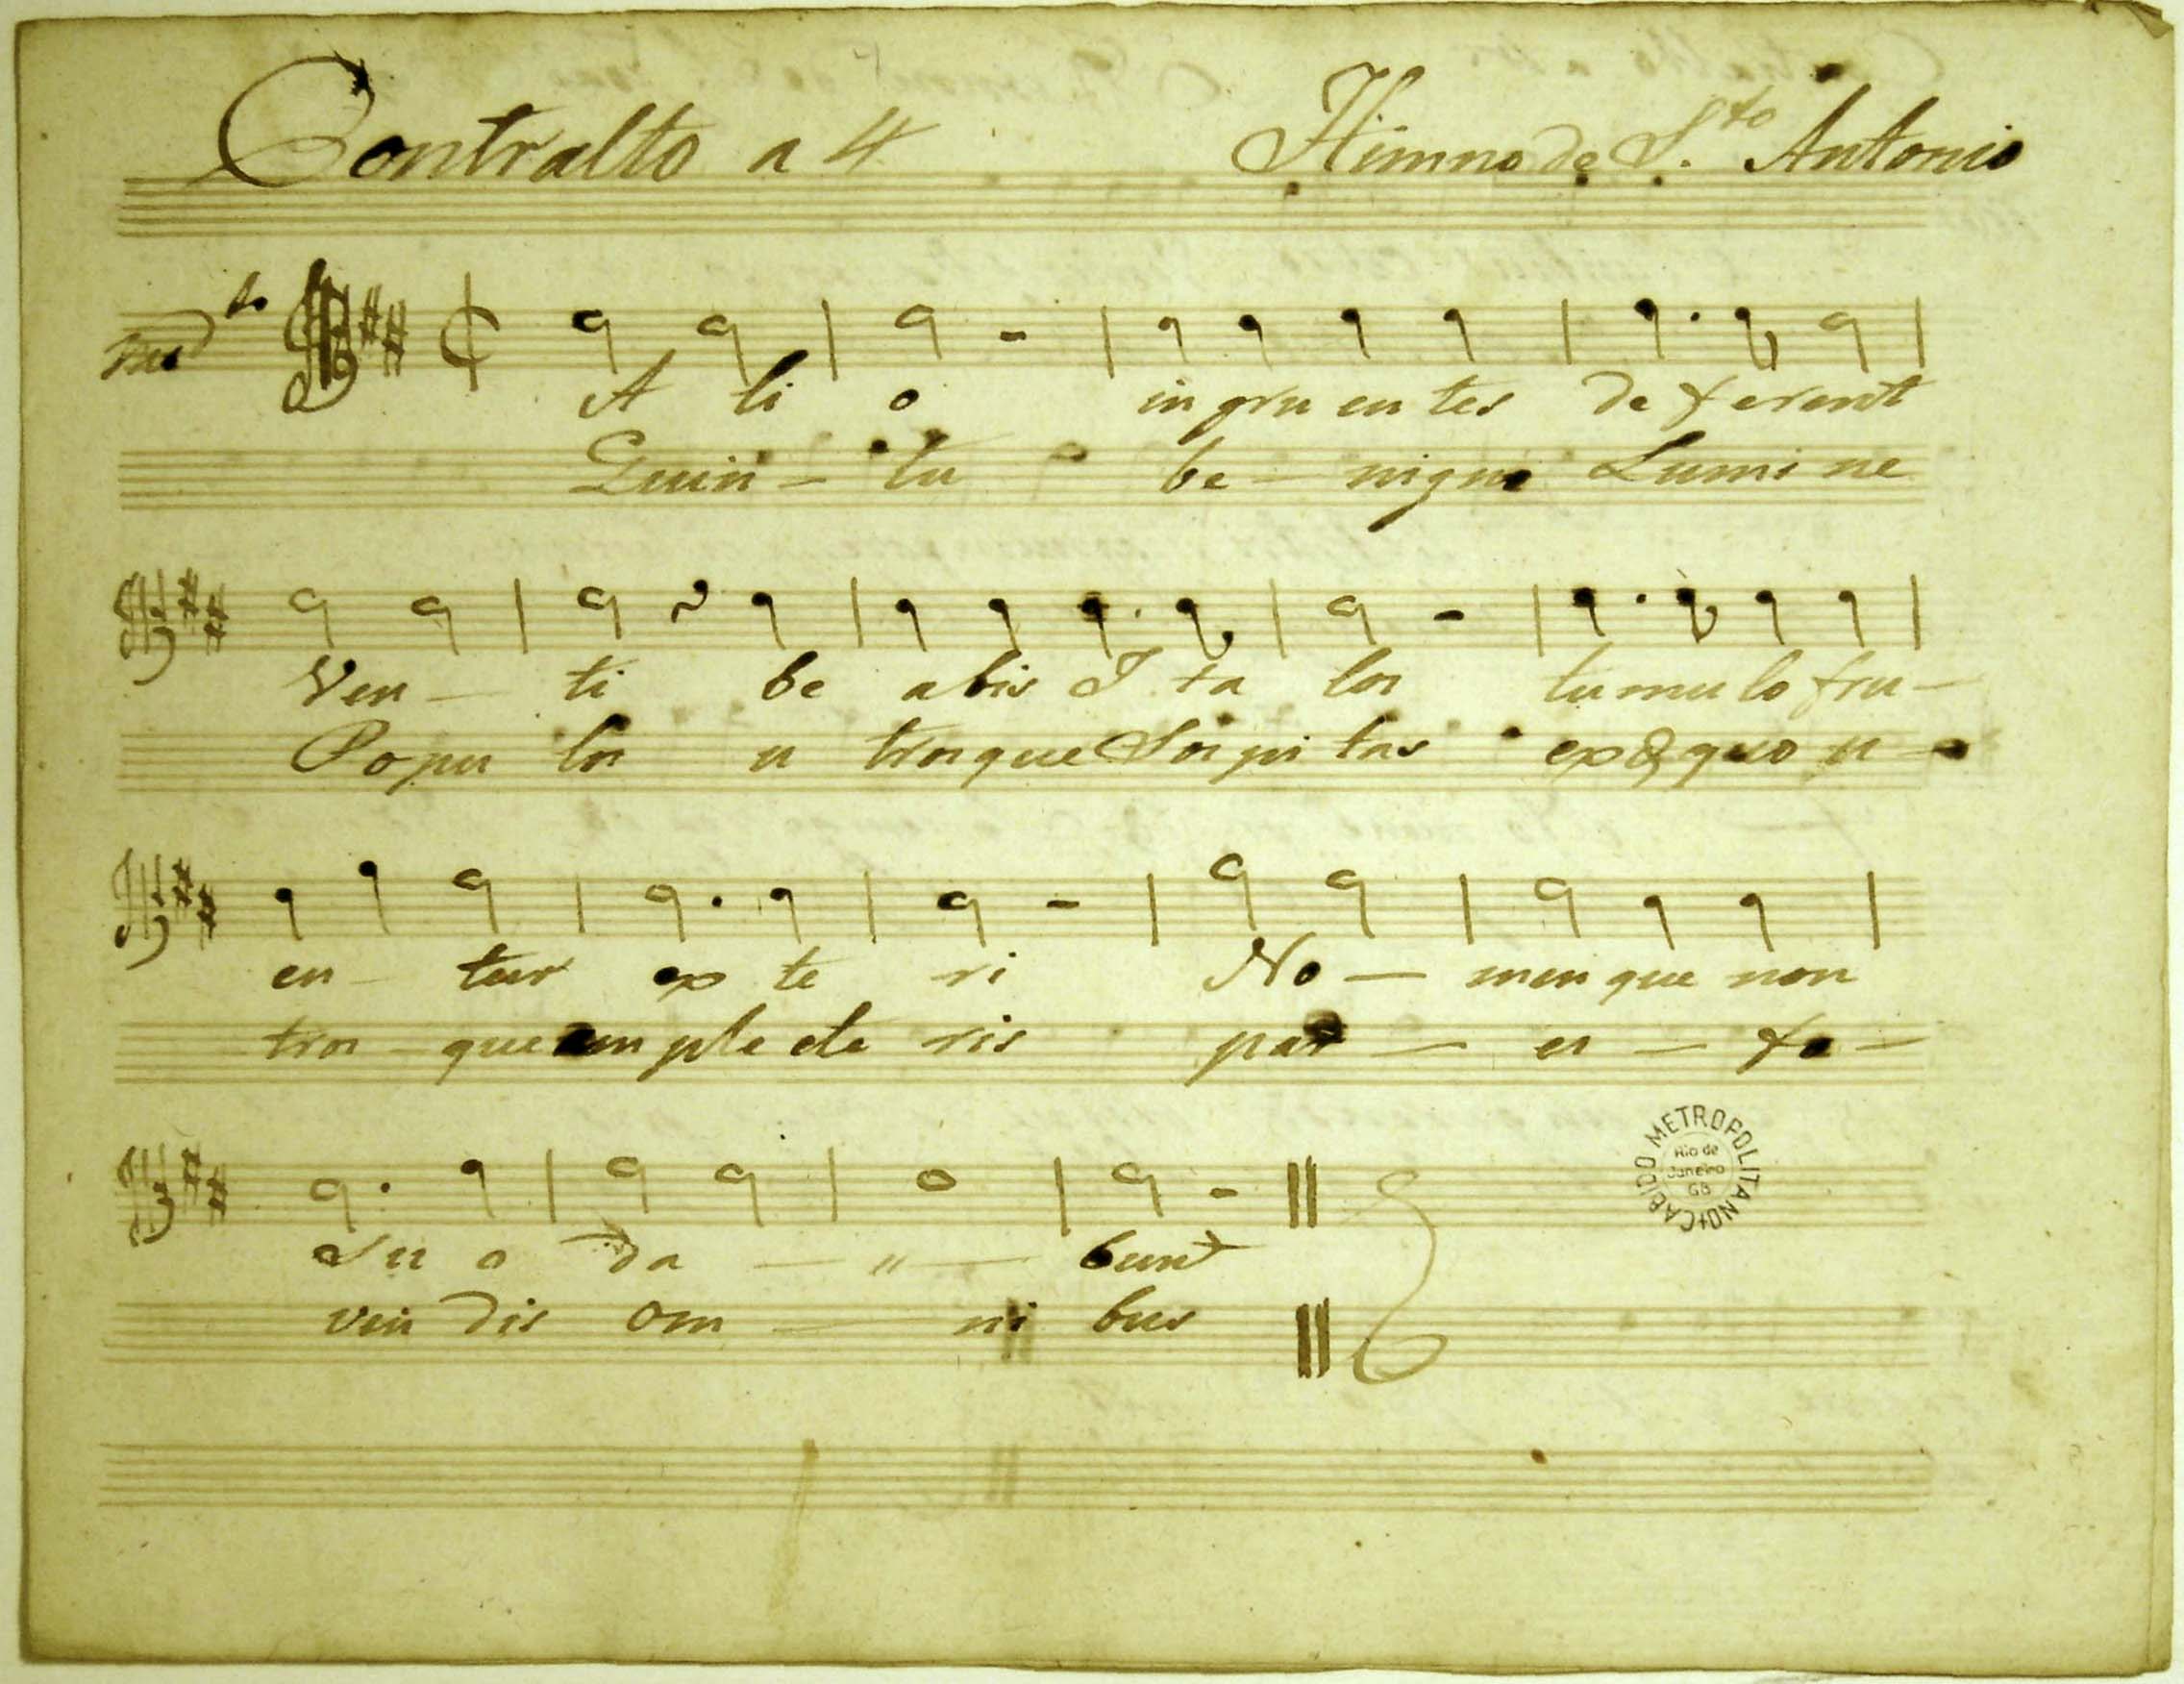 Contralto a 4 Himno de S.to Antonio
A li o in gru en tes de ferent
Quin - tu be - nigno Lumi ne
Ven - ti be abis I ta los tu mu lo fru -
Popu los u trosque Sospi tas ex æ quo u -
en - tur ex te ri No - men que non
tros - que am ple cte ris pa - - fo -
Su o da - " - bunt
vin dis om - ni bus
CABIDO METROPOLITANO
Rio de
Janeiro
GB